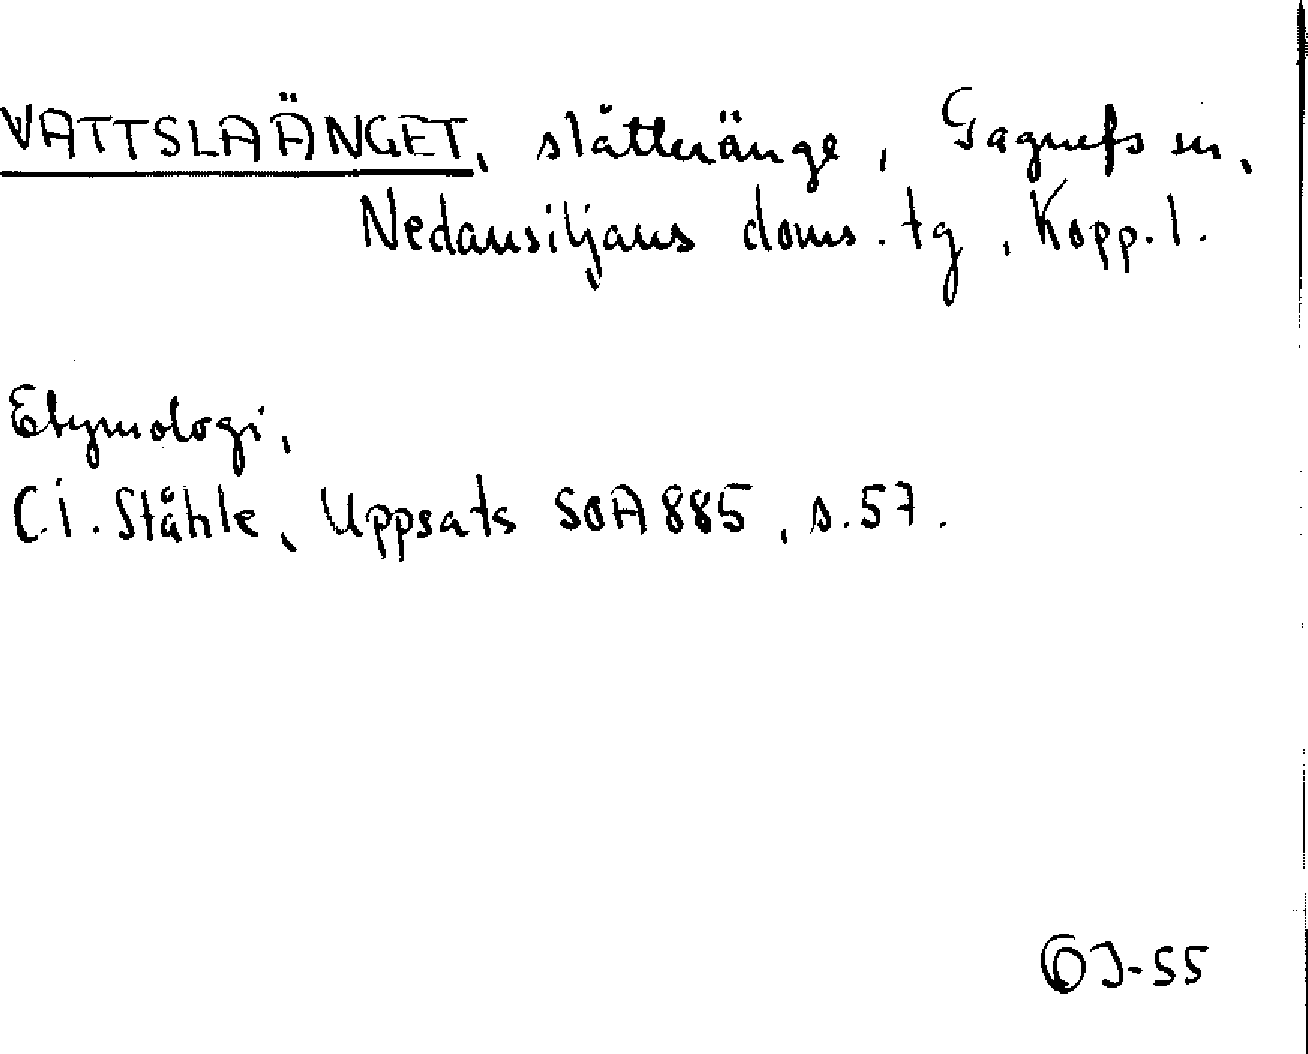 VATTSLAÄNGET, slåtteränge, Gagnefs sn,
Nedansiljans doms. tg, Kopp. l.
Etymologi,
C.I. Ståhle, Uppsats SOA 885, s. 57.
OJ-55